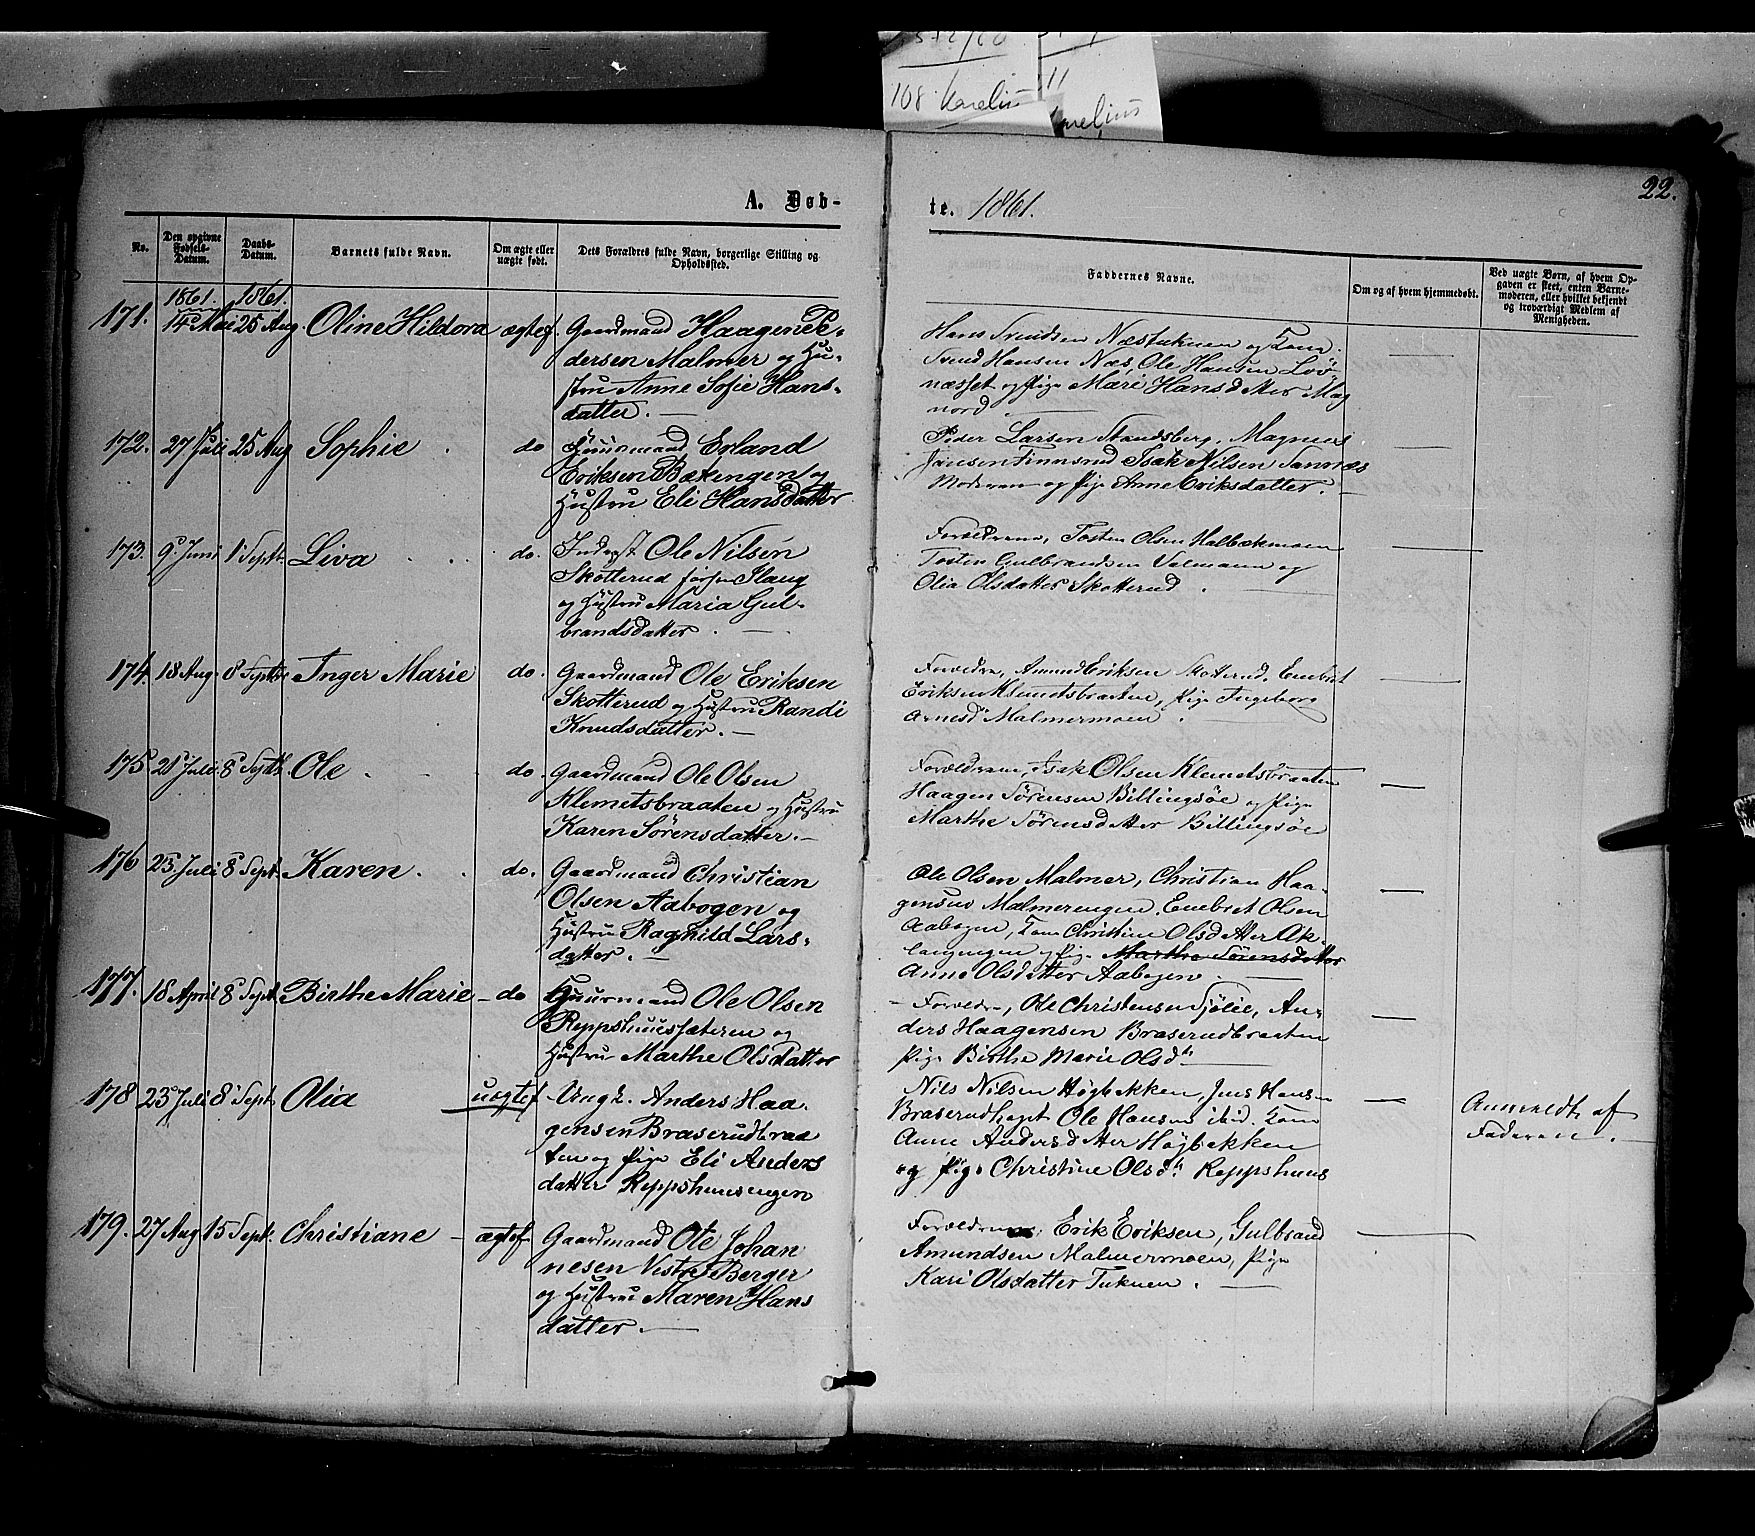 108 Karelius 11
Karelius
22.
A. Døb-
te. 1861.
No.
Den opgivne Fødsels-Datum.
Daabs-Datum.
Barnets fulde Navn.
Om ægte eller uægte født.
Dets Forældres fulde Navn, borgerlige Stilling og Opholdssted.
Faddernes Navne.
Om og af hvem hjemmedøbt.
Ved uægte Børn, af hvem Opgaven er skeet, enten Barnemoderen, eller hvilket bekjendt og troværdigt Medlem af Menigheden.
1861. 1861.
171. 14 Mai 25 Aug Oline Hildora ægtef. Gaardmand Haagen Pe-
dersen Malmer og Hu-
stru Anne Sofie Hans-
datter. —
Hans Svendsen Næstuknen og Kone.
Svend Hansen Næs, Ole Hansen Løv-
næsset og Pige Mari Hansdatter Mag
nord —
172. 27 Juli 25 Aug Sophie do Huusmand Erland
Eriksen Bækengen og
Hustru Eli Hansdatter
Peder Larsen Strandsberg, Magnus
Jansen Finnsrud Isak Nilsen Sannæs
Moderen og Pige Anne Eriksdatter. —
173. 9 Juni 1 Sept. Liva do. Inderst Ole Nilsen
Skotterud
og Hustru Maria Gul-
brandsdatter. —
Forældrene, Tosten Olsen Halbækmoen
Tosten Gulbrandsen og
Olia Olsdatter Skotterud.
174. 18 Aug. 8 Septbr Inger Marie do. Gaardmand Ole Eriksen
Skotterud og Hustru Randi
Knudsdatter. —
Forældre, Amund Eriksen Skotterud, Embret
Eriksen Klemetsbraaten, Pige Ingeborg
Arnesd Malmermoen.
175 21 Juli 8 Septb. Ole do. Gaardmand Ole Olsen
Klemetsbraaten og Hustru
Karen Sørensdatter. —
Forældrene, Isak Olsen Klemetsbraaten
Haagen Sørensen Billingsøe og Pige
Marthe Sørensdatter Billingsøe
176 23. Juli 8 Sept. Karen do. Gaardmand Christian
Olsen Aabogen og
Hustru Ragnild Lars-
datter. —
Ole Olsen Malmer, Christian Haa-
gensen Malmerengen, Embret Olsen
Aabogen, Kone Christine Olsdatter Ak-
og Pige Marthe Sørensdatter
Anne Olsdatter Aabogen. —
177. 18 April 8 Sept. Birthe Marie — do Huusmand Ole Olsen
Reppshuussæteren og
Hustru Marthe Olsdatter
— Forældre, Ole Christensen Sjølie, An-
ders Haagensen Braserudbraaten
Pige Birthe Marie Olsdtr
178 23 Juli 8 Sept. Olia uægtef Ungk. Anders Haa-
gensen Braserudbraa
ten og Pige Eli Anders
datter Reppshuusengen
Nils Nilsen Høgbakken, Jens Hans-
Ole Hansen ibid. Kone
Anne Andersdatter Høgbakken
og Pige Christine Olsdtr Reppshuus
Anmeldt af
Faderen. —
179. 27 Aug 15 Sept. Christiane — ægtef. Gaardmand Ole Johan
nesen Vestre Berger
og Hustru Maren Hans
datter. —
Forældrene, Erik Eriksen, Gulbrand
Amundsen Malmermoen, Pige
Kari Olsdatter Tuknen. —